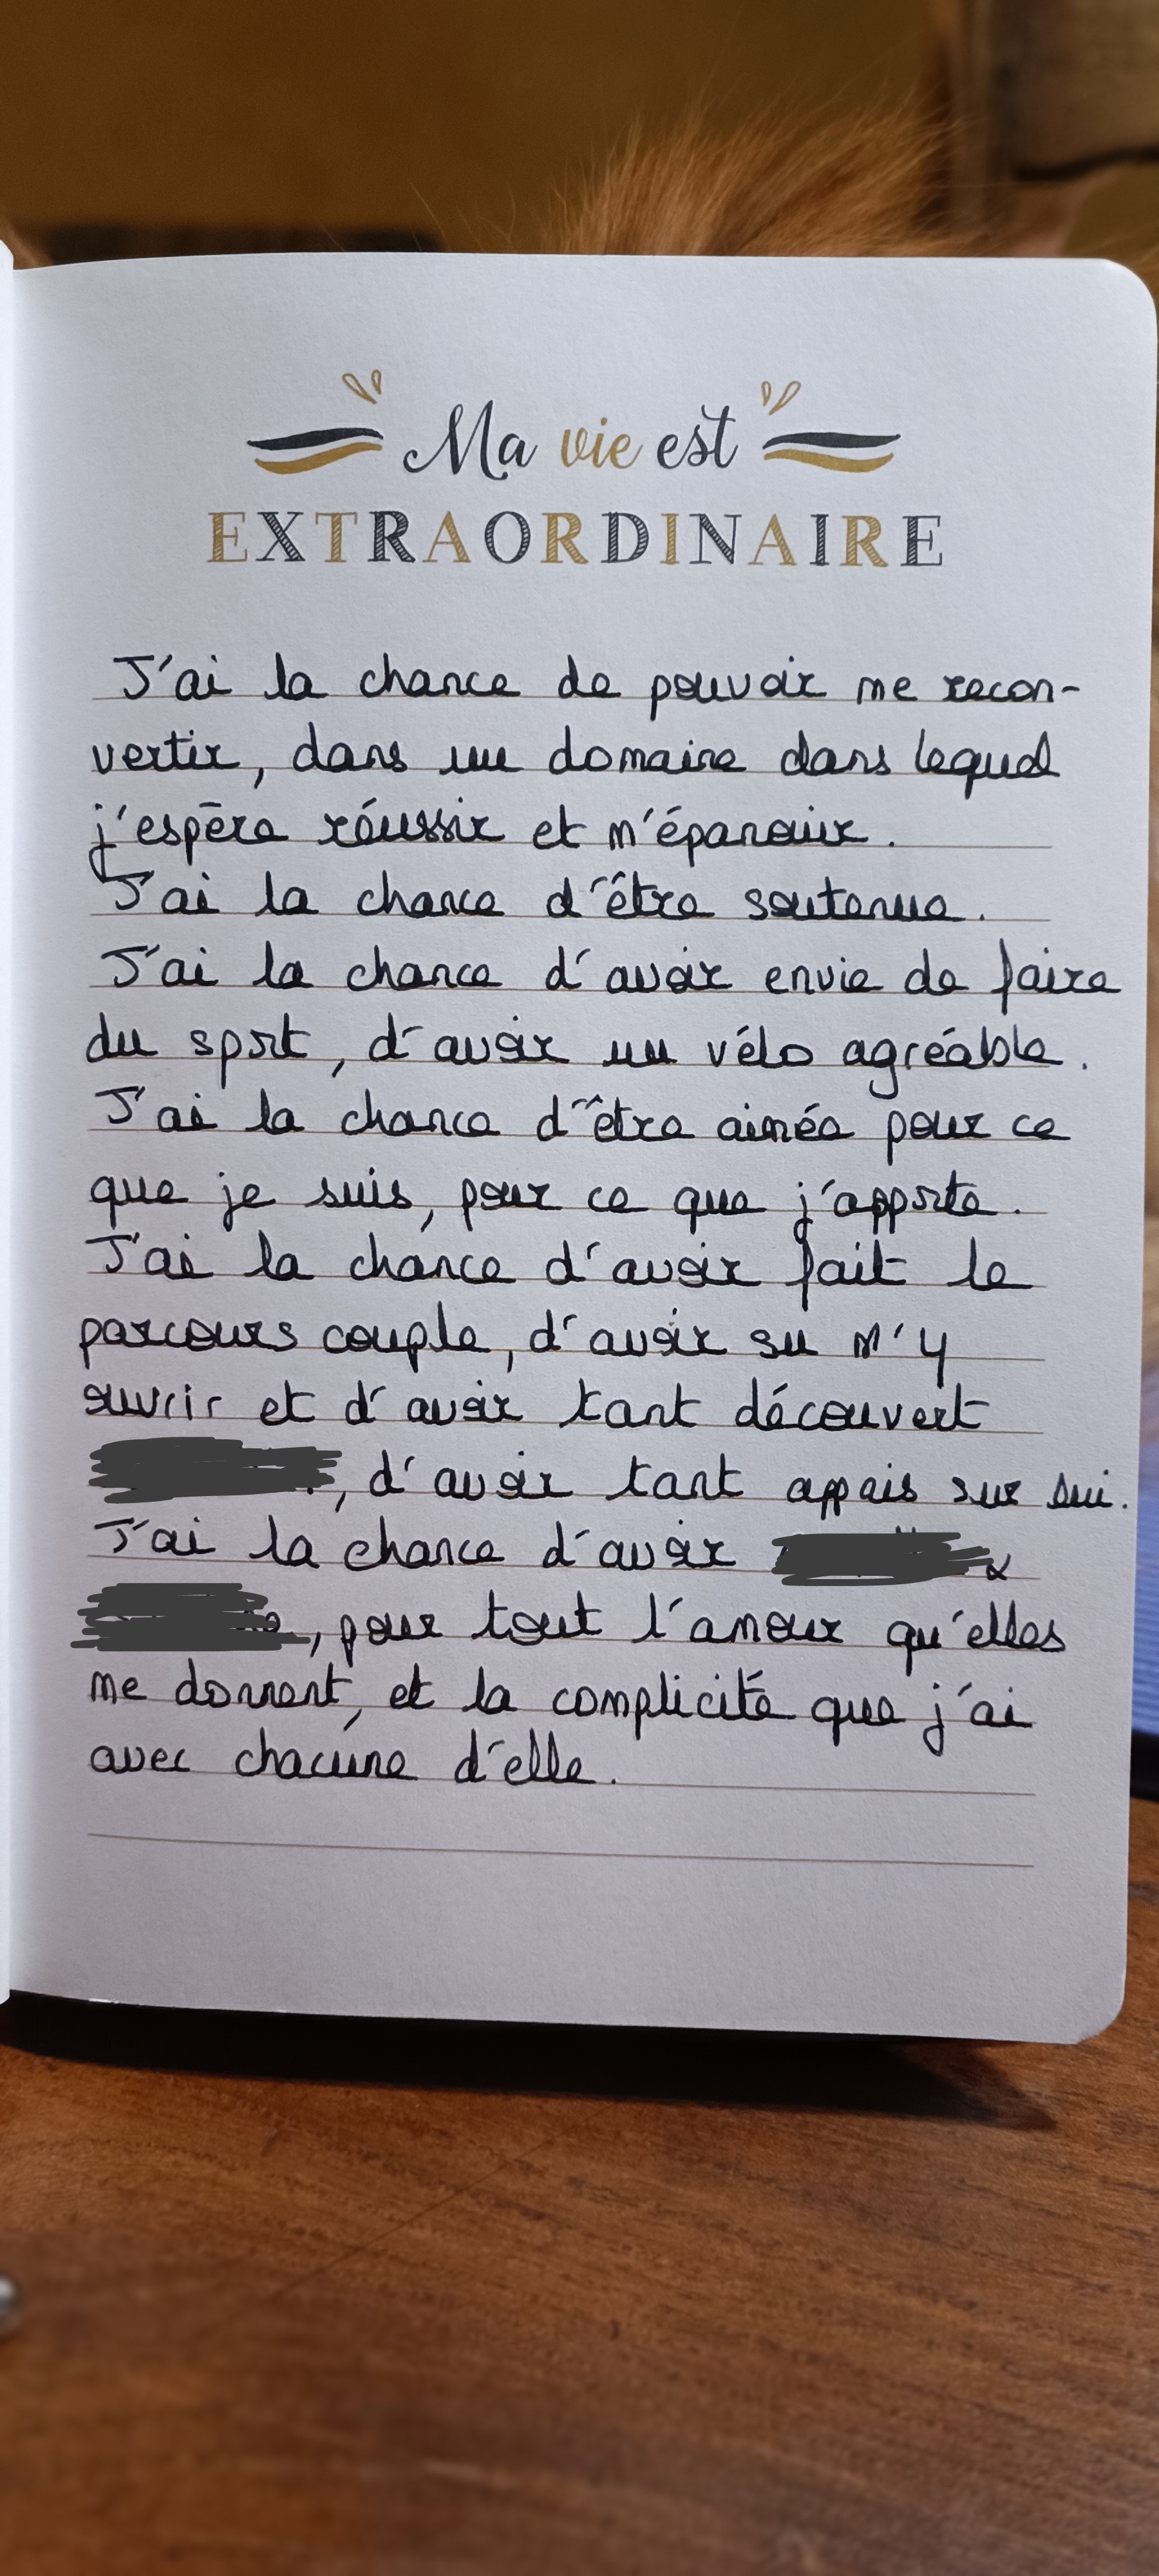 Ma vie est
EXTRAORDINAIRE
J'ai la chance de pouvoir me recon-
vertir, dans un domaine dans lequel
j'espère réussir et m'épanouir.
J'ai la chance d'être soutenue.
J'ai la chance d'avoir envie de faire
du sport, d'avoir un vélo agréable.
J'ai la chance d'être aimée pour ce
que je suis, pour ce que j'apporte.
J'ai la chance d'avoir fait le
parcours couple, d'avoir su m'y
ouvrir et d'avoir tant découvert
, d'avoir tant appris sur lui.
J'ai la chance d'avoir &
, pour tout l'amour qu'elles
me donnent, et la complicité que j'ai
avec chacune d'elle.